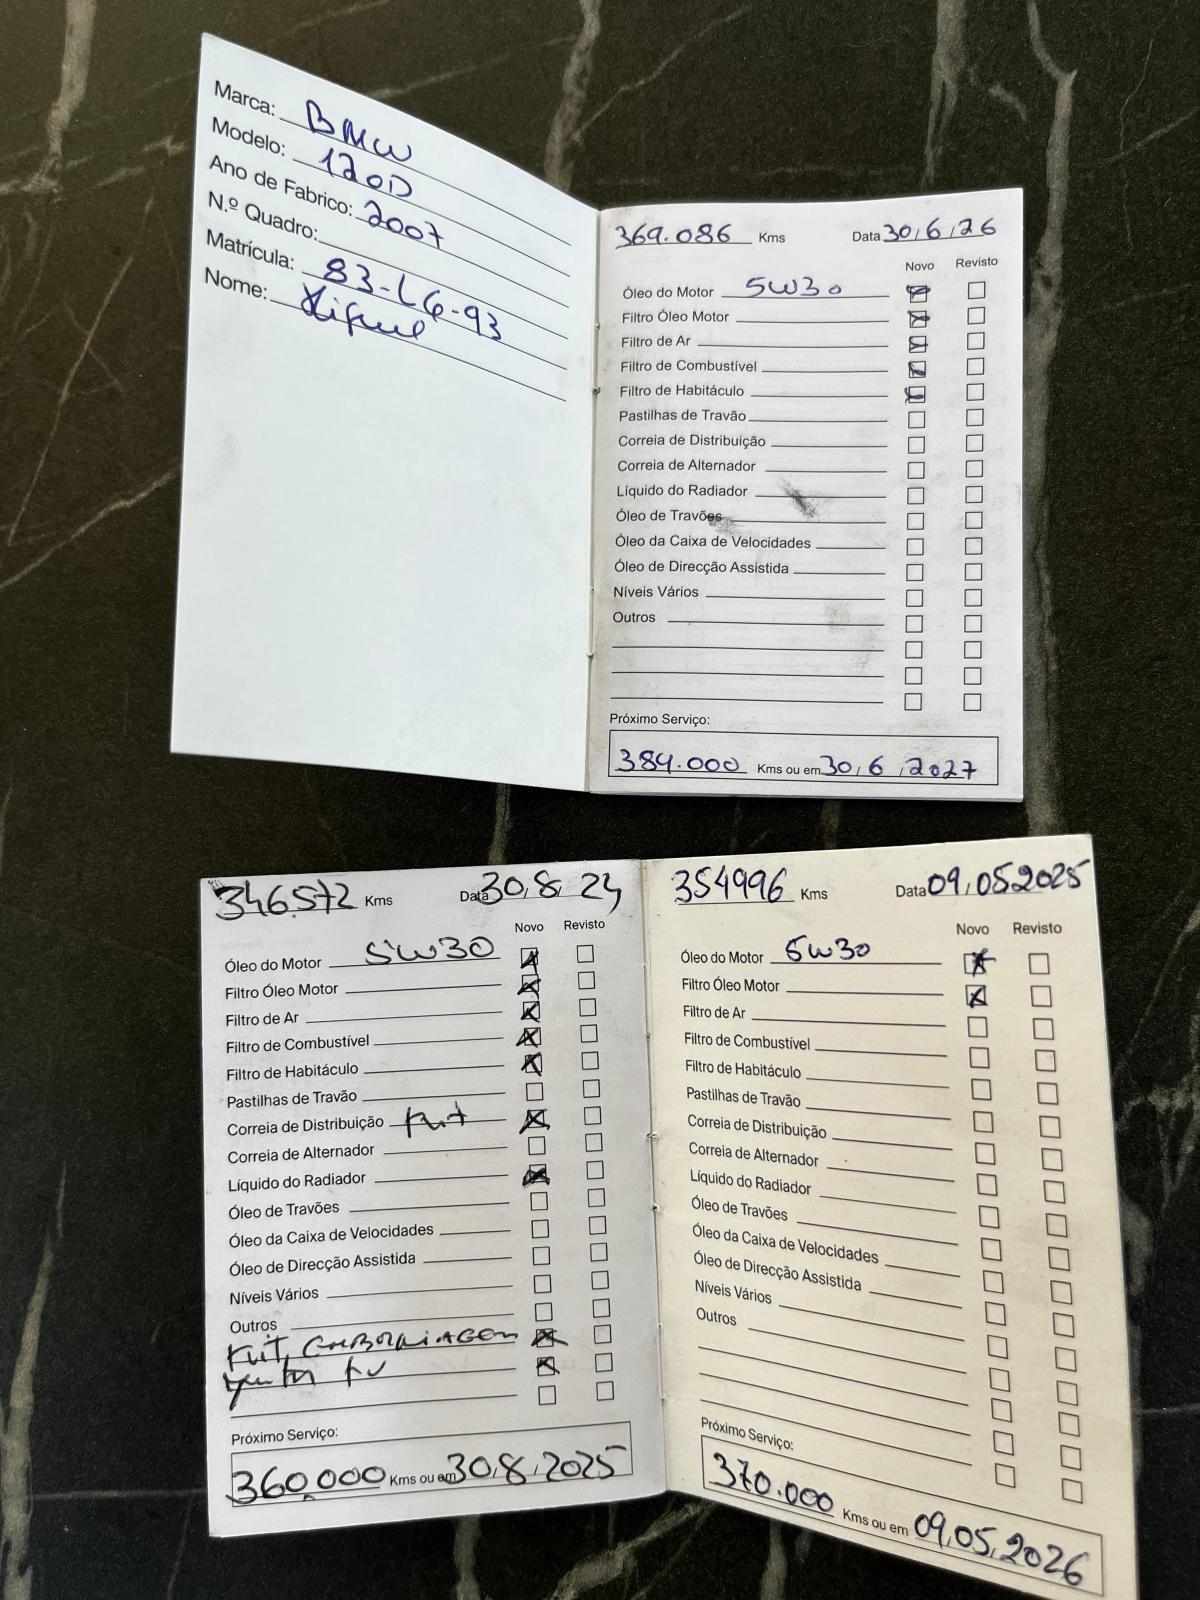 Marca: BMW
Modelo: 120D
Ano de Fabrico: 2007
N.º Quadro:
Matrícula: 83-LG-93
Nome:
369.086 Kms Data 30/6/26
Novo Revisto
Óleo do Motor 5W30
Filtro Óleo Motor
Filtro de Ar
Filtro de Combustível
Filtro de Habitáculo
Pastilhas de Travão
Correia de Distribuição
Correia de Alternador
Líquido do Radiador
Óleo de Travões
Óleo da Caixa de Velocidades
Óleo de Direcção Assistida
Níveis Vários
Outros
Próximo Serviço:
384.000 Kms ou em 30/6/2027
346.572 Kms Data 30/8/24
Novo Revisto
Óleo do Motor 5W30
Filtro Óleo Motor
Filtro de Ar
Filtro de Combustível
Filtro de Habitáculo
Pastilhas de Travão
Correia de Distribuição Kit
Correia de Alternador
Líquido do Radiador
Óleo de Travões
Óleo da Caixa de Velocidades
Óleo de Direcção Assistida
Níveis Vários
Outros
Kit, EMBORIAGEM
Próximo Serviço:
360.000 Kms ou em 30/8/2025
354996 Kms Data 09/05/2025
Novo Revisto
Óleo do Motor 5W30
Filtro Óleo Motor
Filtro de Ar
Filtro de Combustível
Filtro de Habitáculo
Pastilhas de Travão
Correia de Distribuição
Correia de Alternador
Líquido do Radiador
Óleo de Travões
Óleo da Caixa de Velocidades
Óleo de Direcção Assistida
Níveis Vários
Outros
Próximo Serviço:
370.000 Kms ou em 09/05/2026